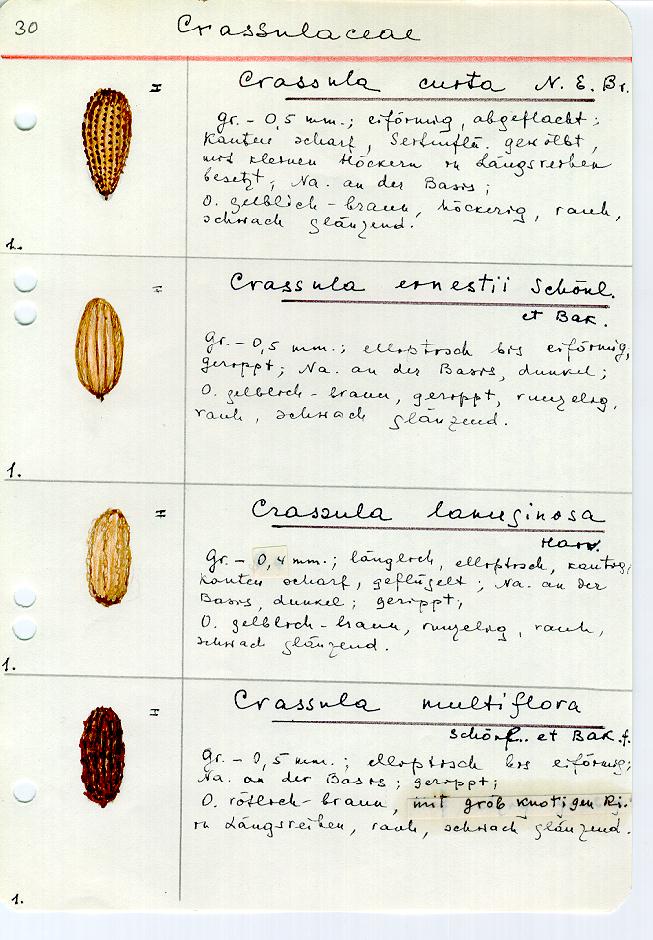 30
Crassulaceae
I
Crassula curta N. E. Br.
gr. - 0,5 mm.; eiförmig, abgeflacht;
Kanten scharf, Seitenflä. gewölbt,
mit kleinen Höckern in Längsreihen
besetzt; Na. an der Basis;
O. gelblich-braun, höckerig, rauh,
schwach glänzend.
1.
I
Crassula ernestii Schönl.
et Bak.
gr. - 0,5 mm.; elliptisch bis eiförmig,
gerippt; Na. an der Basis, dunkel;
O. gelblich-braun, gerippt, runzelig,
rauh, schwach glänzend.
1.
I
Crassula lanuginosa
Harv.
gr. - 0,4 mm.; länglich, elliptisch, kantig,
Kanten scharf, geflügelt; Na. an der
Basis, dunkel; gerippt;
O. gelblich-braun, runzelig, rauh,
schwach glänzend.
1.
I
Crassula multiflora
Schönl. et Bak. f.
gr. - 0,5 mm.; elliptisch bis eiförmig;
Na. an der Basis; gerippt;
O. rötlich-braun, mit grob knotigen Ri.
in Längsreihen, rauh, schwach glänzend.
1.